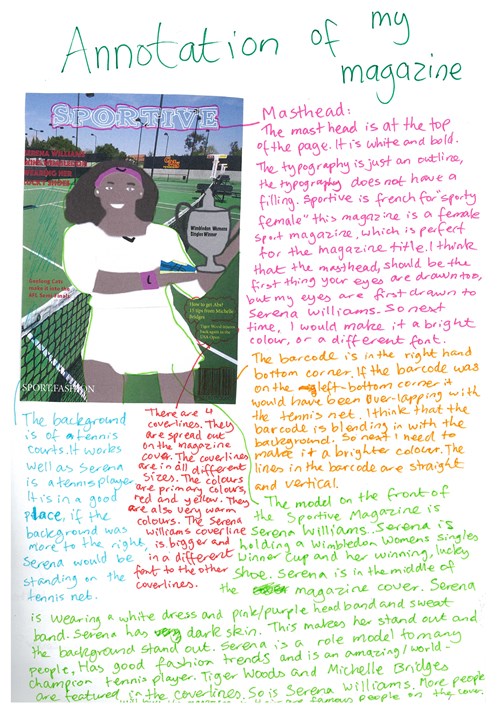 Annotation of my
magazine
SPORTIVE
SERENA WILLIAMS
WEARING HER
LUCKY SHOES
Wimbledon Womens
Singles Winner
Geelong Cats
make it into the
AFL Semi Finals
How to get Abs?
15 tips from Michelle
Bridges
Tiger Wood misses
back again in the
USA Open
SPORT.FASHION
Masthead:
The mast head is at the top
of the page. It is white and bold.
The typography is just an outline,
the typography does not have a
filling. Sportive is french for "sporty
female" this magazine is a female
sport magazine, which is perfect
for the magazine title. I think
that the masthead, should be the
first thing your eyes are drawn too,
but my eyes are first drawn to
Serena Williams. So next
time, I would make it a bright
colour, or a different font.
The barcode is in the right hand
bottom corner. If the barcode was
on the left bottom corner it
would have been over-lapping with
the tennis net. I think that the
barcode is blending in with the
background. So next I need to
make it a brighter colour. The
lines in the barcode are straight
and vertical.
The background
is of a tennis
courts. It works
well as Serena
is a tennis player.
It is in a good
place, if the
background was
more to the right,
Serena would be
standing on the
tennis net.
There are 4
coverlines. They
are spread out
on the magazine
cover. The coverlines
are in all different
sizes. The colours
are primary colours,
red and yellow. They
are also very warm
colours. The Serena
williams coverline
is bigger and
in a different
font to the other
coverlines.
The model on the front of
the Sportive Magazine is
Serena Williams. Serena is
holding a Wimbledon Womens Singles
Winner Cup and her winning, lucky
shoe. Serena is in the middle of
the magazine cover. Serena
is wearing a white dress and pink/purple head band and sweat
band. Serena has very dark skin. This makes her stand out and
the background stand out. Serena is a role model to many
people, Has good fashion trends and is an amazing/world-
champion tennis player. Tiger Woods and Michelle Bridges
are featured in the coverlines. So is Serena Williams. More people
are famous people on the cover.